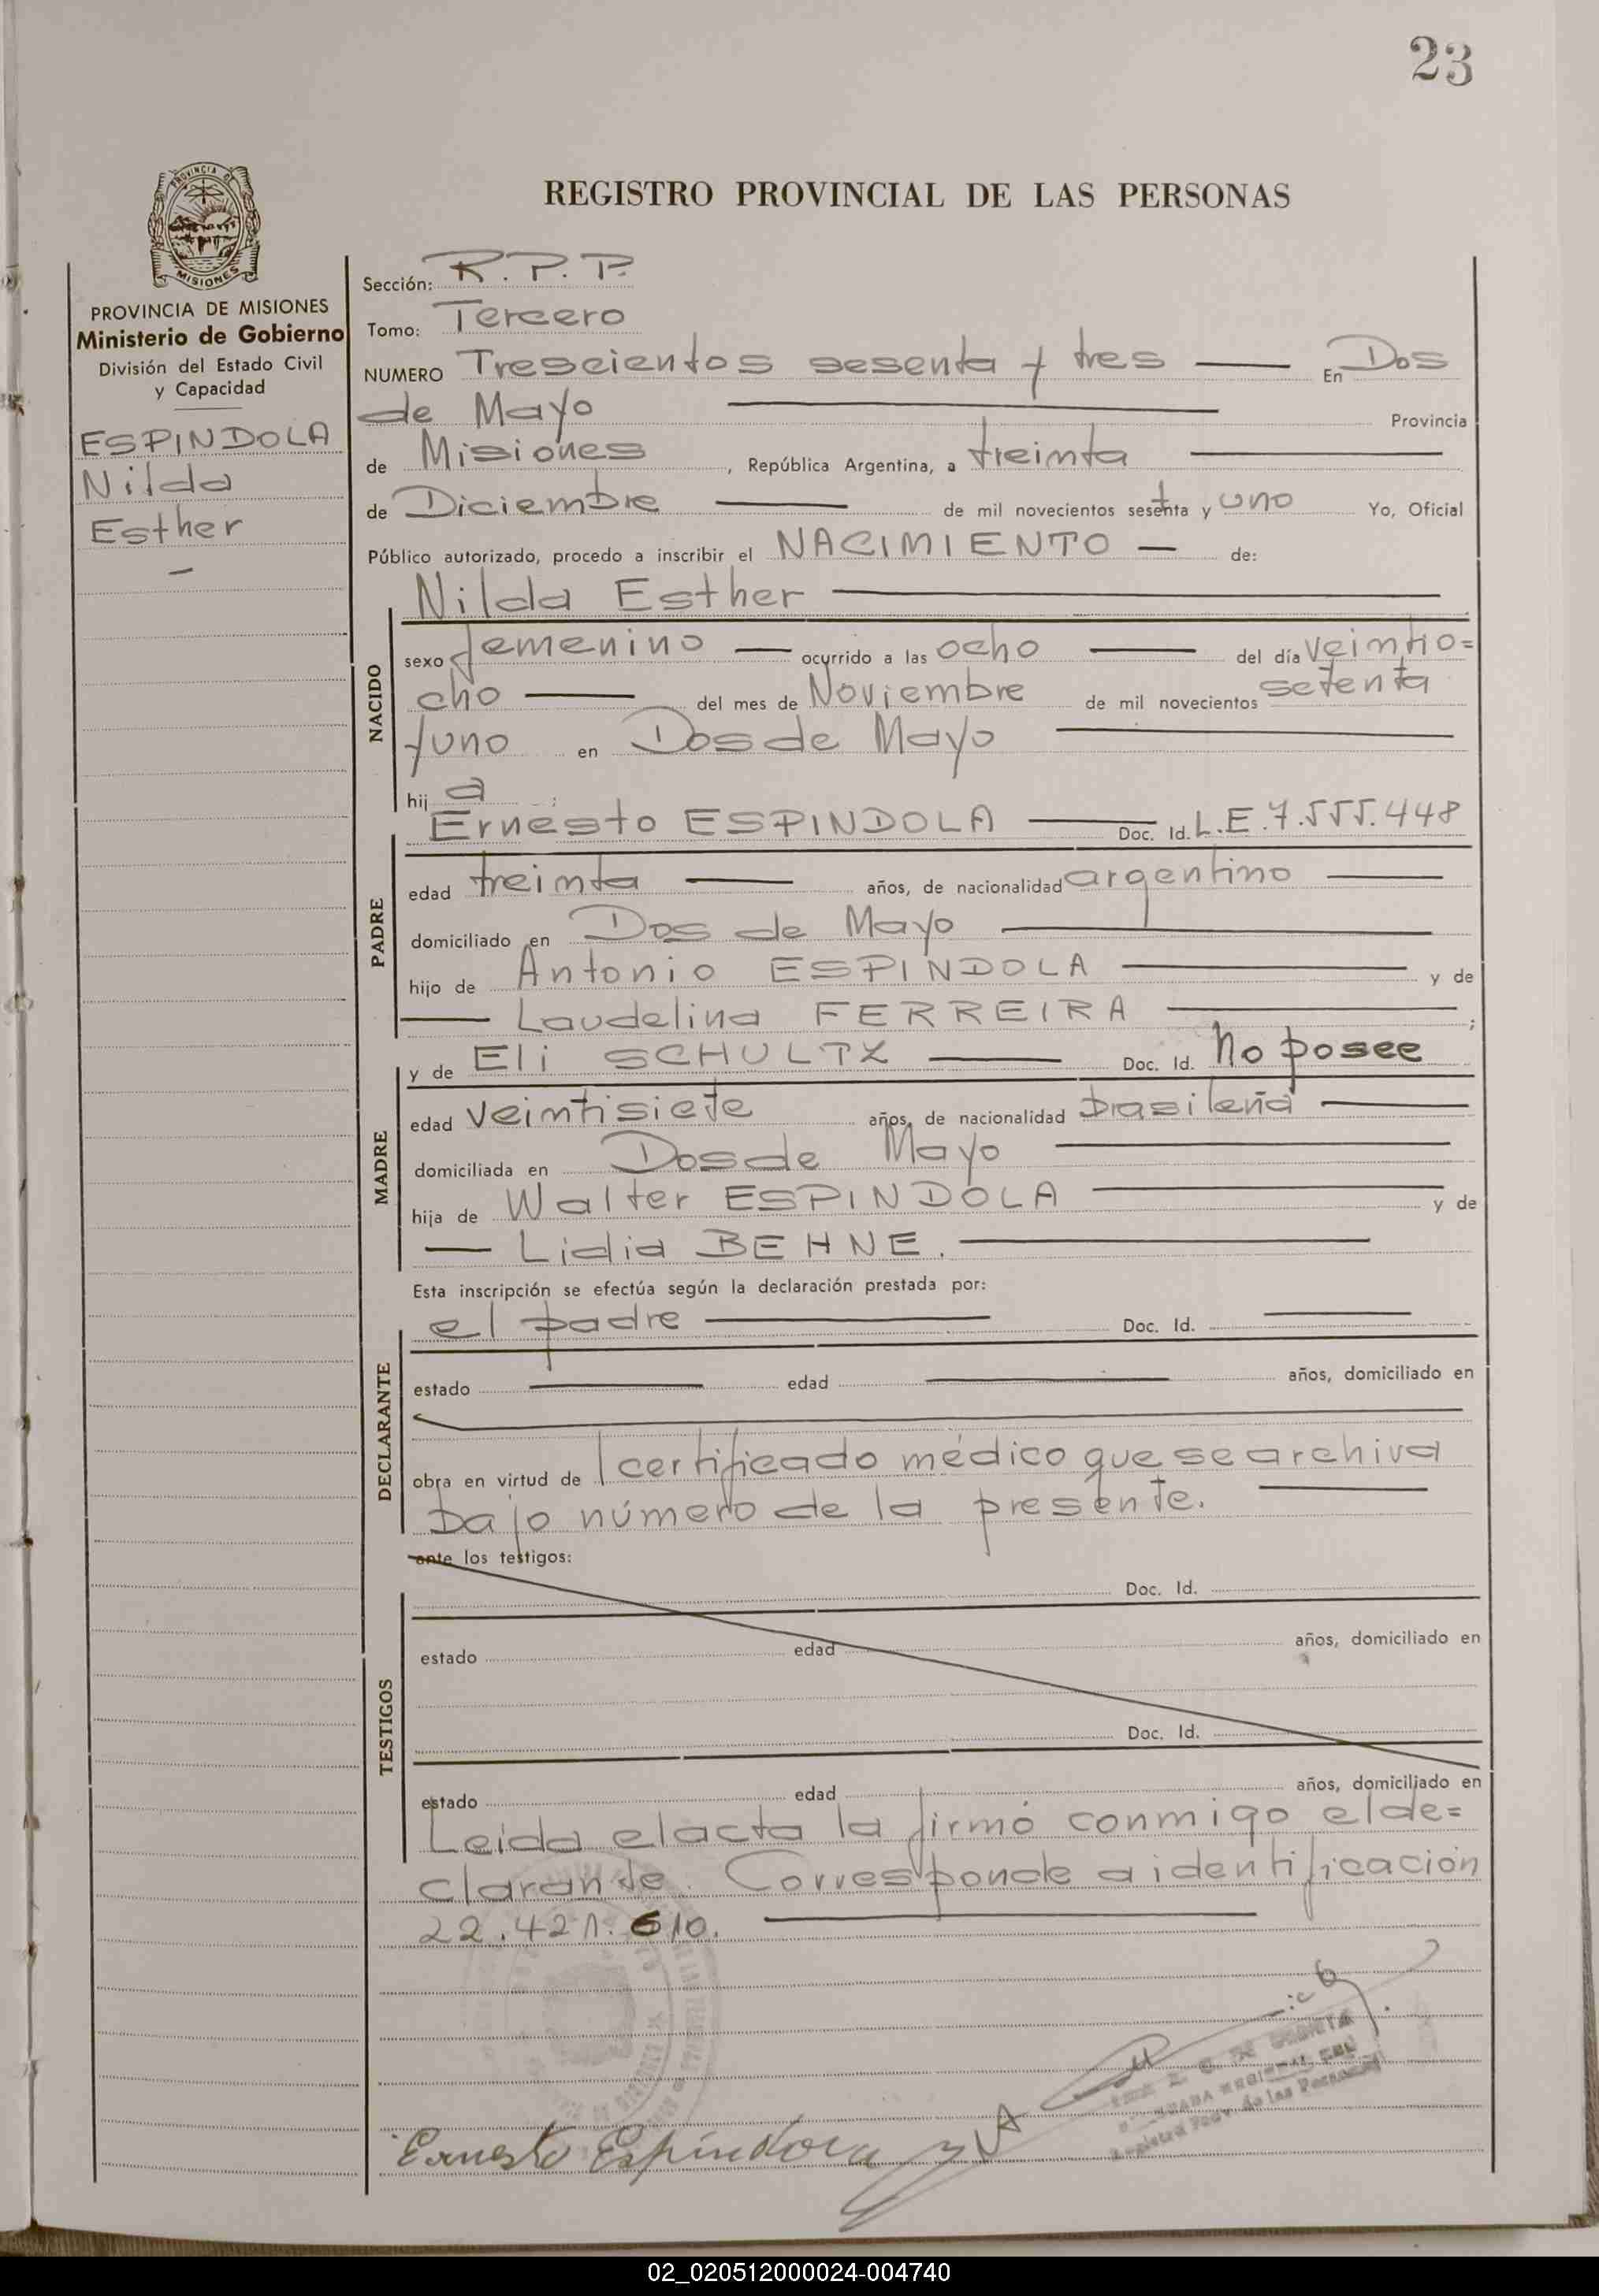 23
REGISTRO PROVINCIAL DE LAS PERSONAS
PROVINCIA DE MISIONES
Ministerio de Gobierno
División del Estado Civil
y Capacidad
ESPINDOLA
Nilda
Esther
Sección: R. P. P.
Tomo: Tercero
NUMERO Trescientos sesenta y tres En Dos
de Mayo Provincia
de Misiones, República Argentina, a treinta
de Diciembre de mil novecientos setenta y uno Yo, Oficial
Público autorizado, procedo a inscribir el NACIMIENTO de:
Nilda Esther
NACIDO
sexo femenino ocurrido a las ocho del día veintio=
cho del mes de Noviembre de mil novecientos setenta
y uno en Dos de Mayo
hij a
PADRE
Ernesto ESPINDOLA Doc. Id. L.E. 7.555.448
edad treinta años, de nacionalidad argentino
domiciliado en Dos de Mayo
hijo de Antonio ESPINDOLA y de
Laudelina FERREIRA ;
MADRE
y de Eli SCHULTZ Doc. Id. No posee
edad veintisiete años, de nacionalidad brasileña
domiciliada en Dos de Mayo
hija de Walter ESPINDOLA y de
Lidia BEHNE.
Esta inscripción se efectúa según la declaración prestada por:
DECLARANTE
el padre Doc. Id.
estado edad años, domiciliado en
obra en virtud de certificado médico que se archiva
bajo número de la presente.
ante los testigos:
TESTIGOS
Doc. Id.
estado edad años, domiciliado en
Doc. Id.
estado edad años, domiciliado en
Leida el acta la firmó conmigo el de=
clarante. Corresponde a identificación
22.421.610.
Ernesto Espindola
02_020512000024-004740